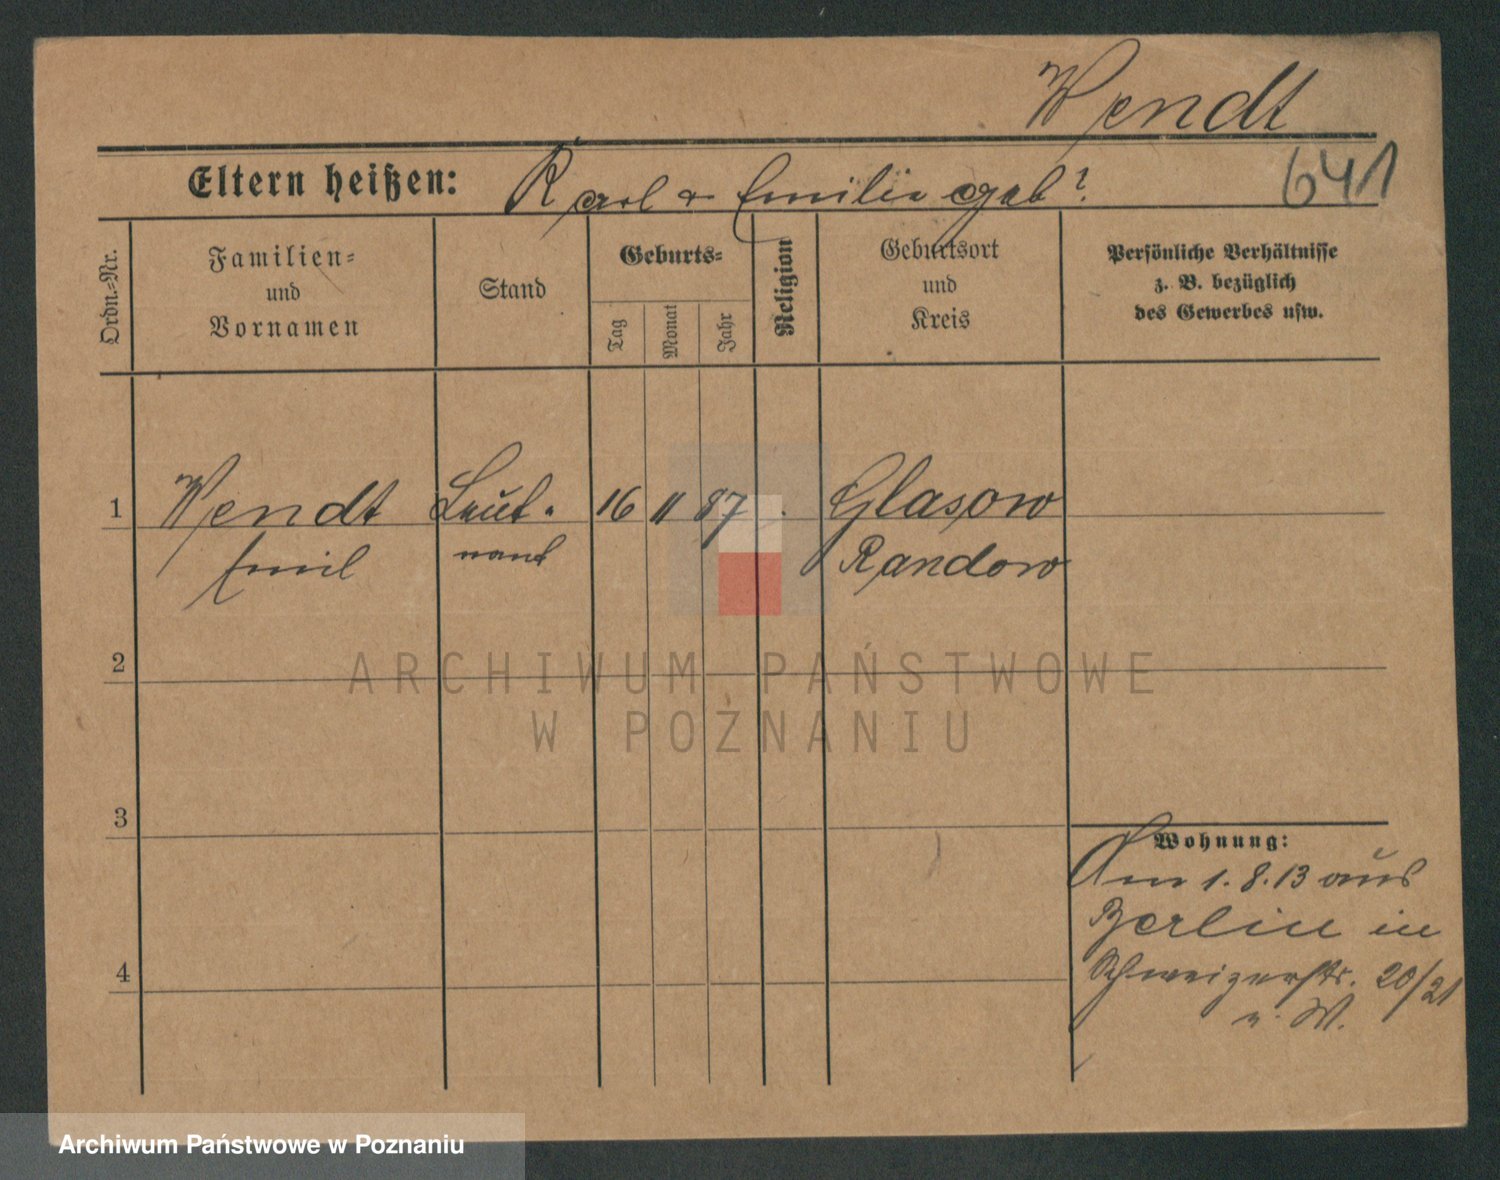 Wendt
Eltern heißen: Karl & Emilie geb?
641
Ordn.-Nr.
Familien-
und
Vornamen
Stand
Geburts-
Tag
Monat
Jahr
Religion
Geburtsort
und
Kreis
Persönliche Verhältnisse
z. B. bezüglich
des Gewerbes usw.
1 Wendt Leut- 16 11 87 Glasow
Emil nant Randow
2
ARCHIWUM PAŃSTWOWE
W POZNANIU
3
Wohnung:
Am 1. 8. 13 aus
Berlin in
4
Schweizerstr. 20/21
W.
Archiwum Państwowe w Poznaniu